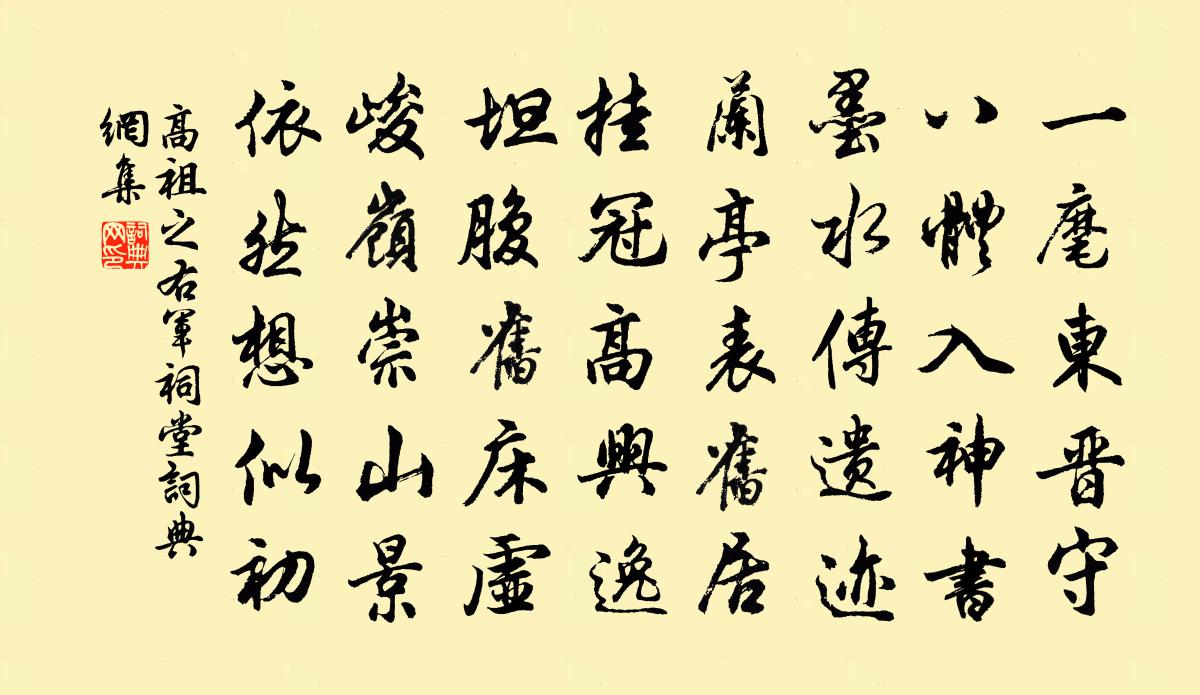 一麾東晋守
八體入神書
墨水傳遺迹
蘭亭表舊居
挂冠高興逸
坦腹舊床虛
峻嶺崇山景
依然想似初
高祖之右軍祠堂詞典
網集
詞典網印